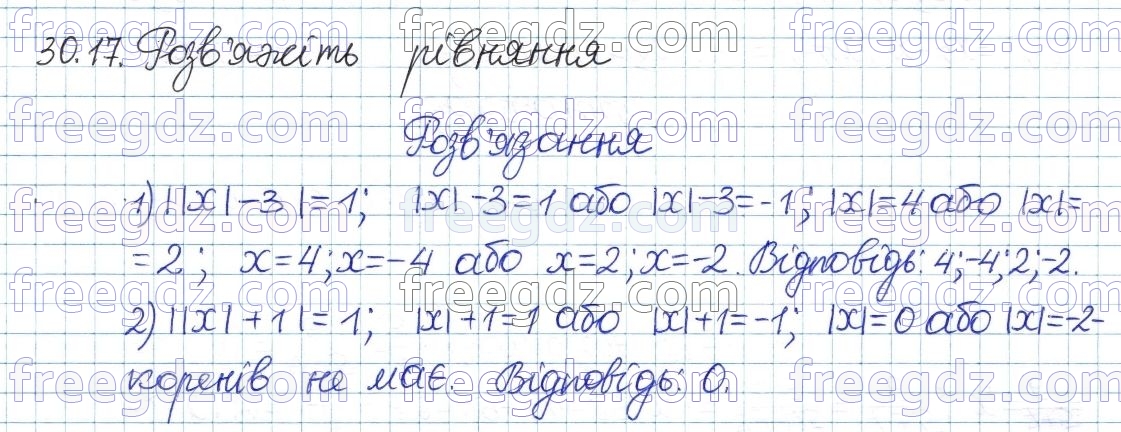 30.17. Розв'яжіть рівняння
Розв'язання
1) ||x| - 3| = 1; |x| - 3 = 1 або |x| - 3 = -1; |x| = 4 або |x| =
= 2; x = 4; x = -4 або x = 2; x = -2. Відповідь: 4; -4; 2; -2.
2) ||x| + 1| = 1; |x| + 1 = 1 або |x| + 1 = -1; |x| = 0 або |x| = -2 -
коренів не має. Відповідь: 0.
freegdz.com freegdz.com freegdz.com
freegdz.com freegdz.com freegdz.com
freegdz.com freegdz.com freegdz.com
freegdz.com freegdz.com freegdz.com
freegdz.com freegdz.com freegdz.com